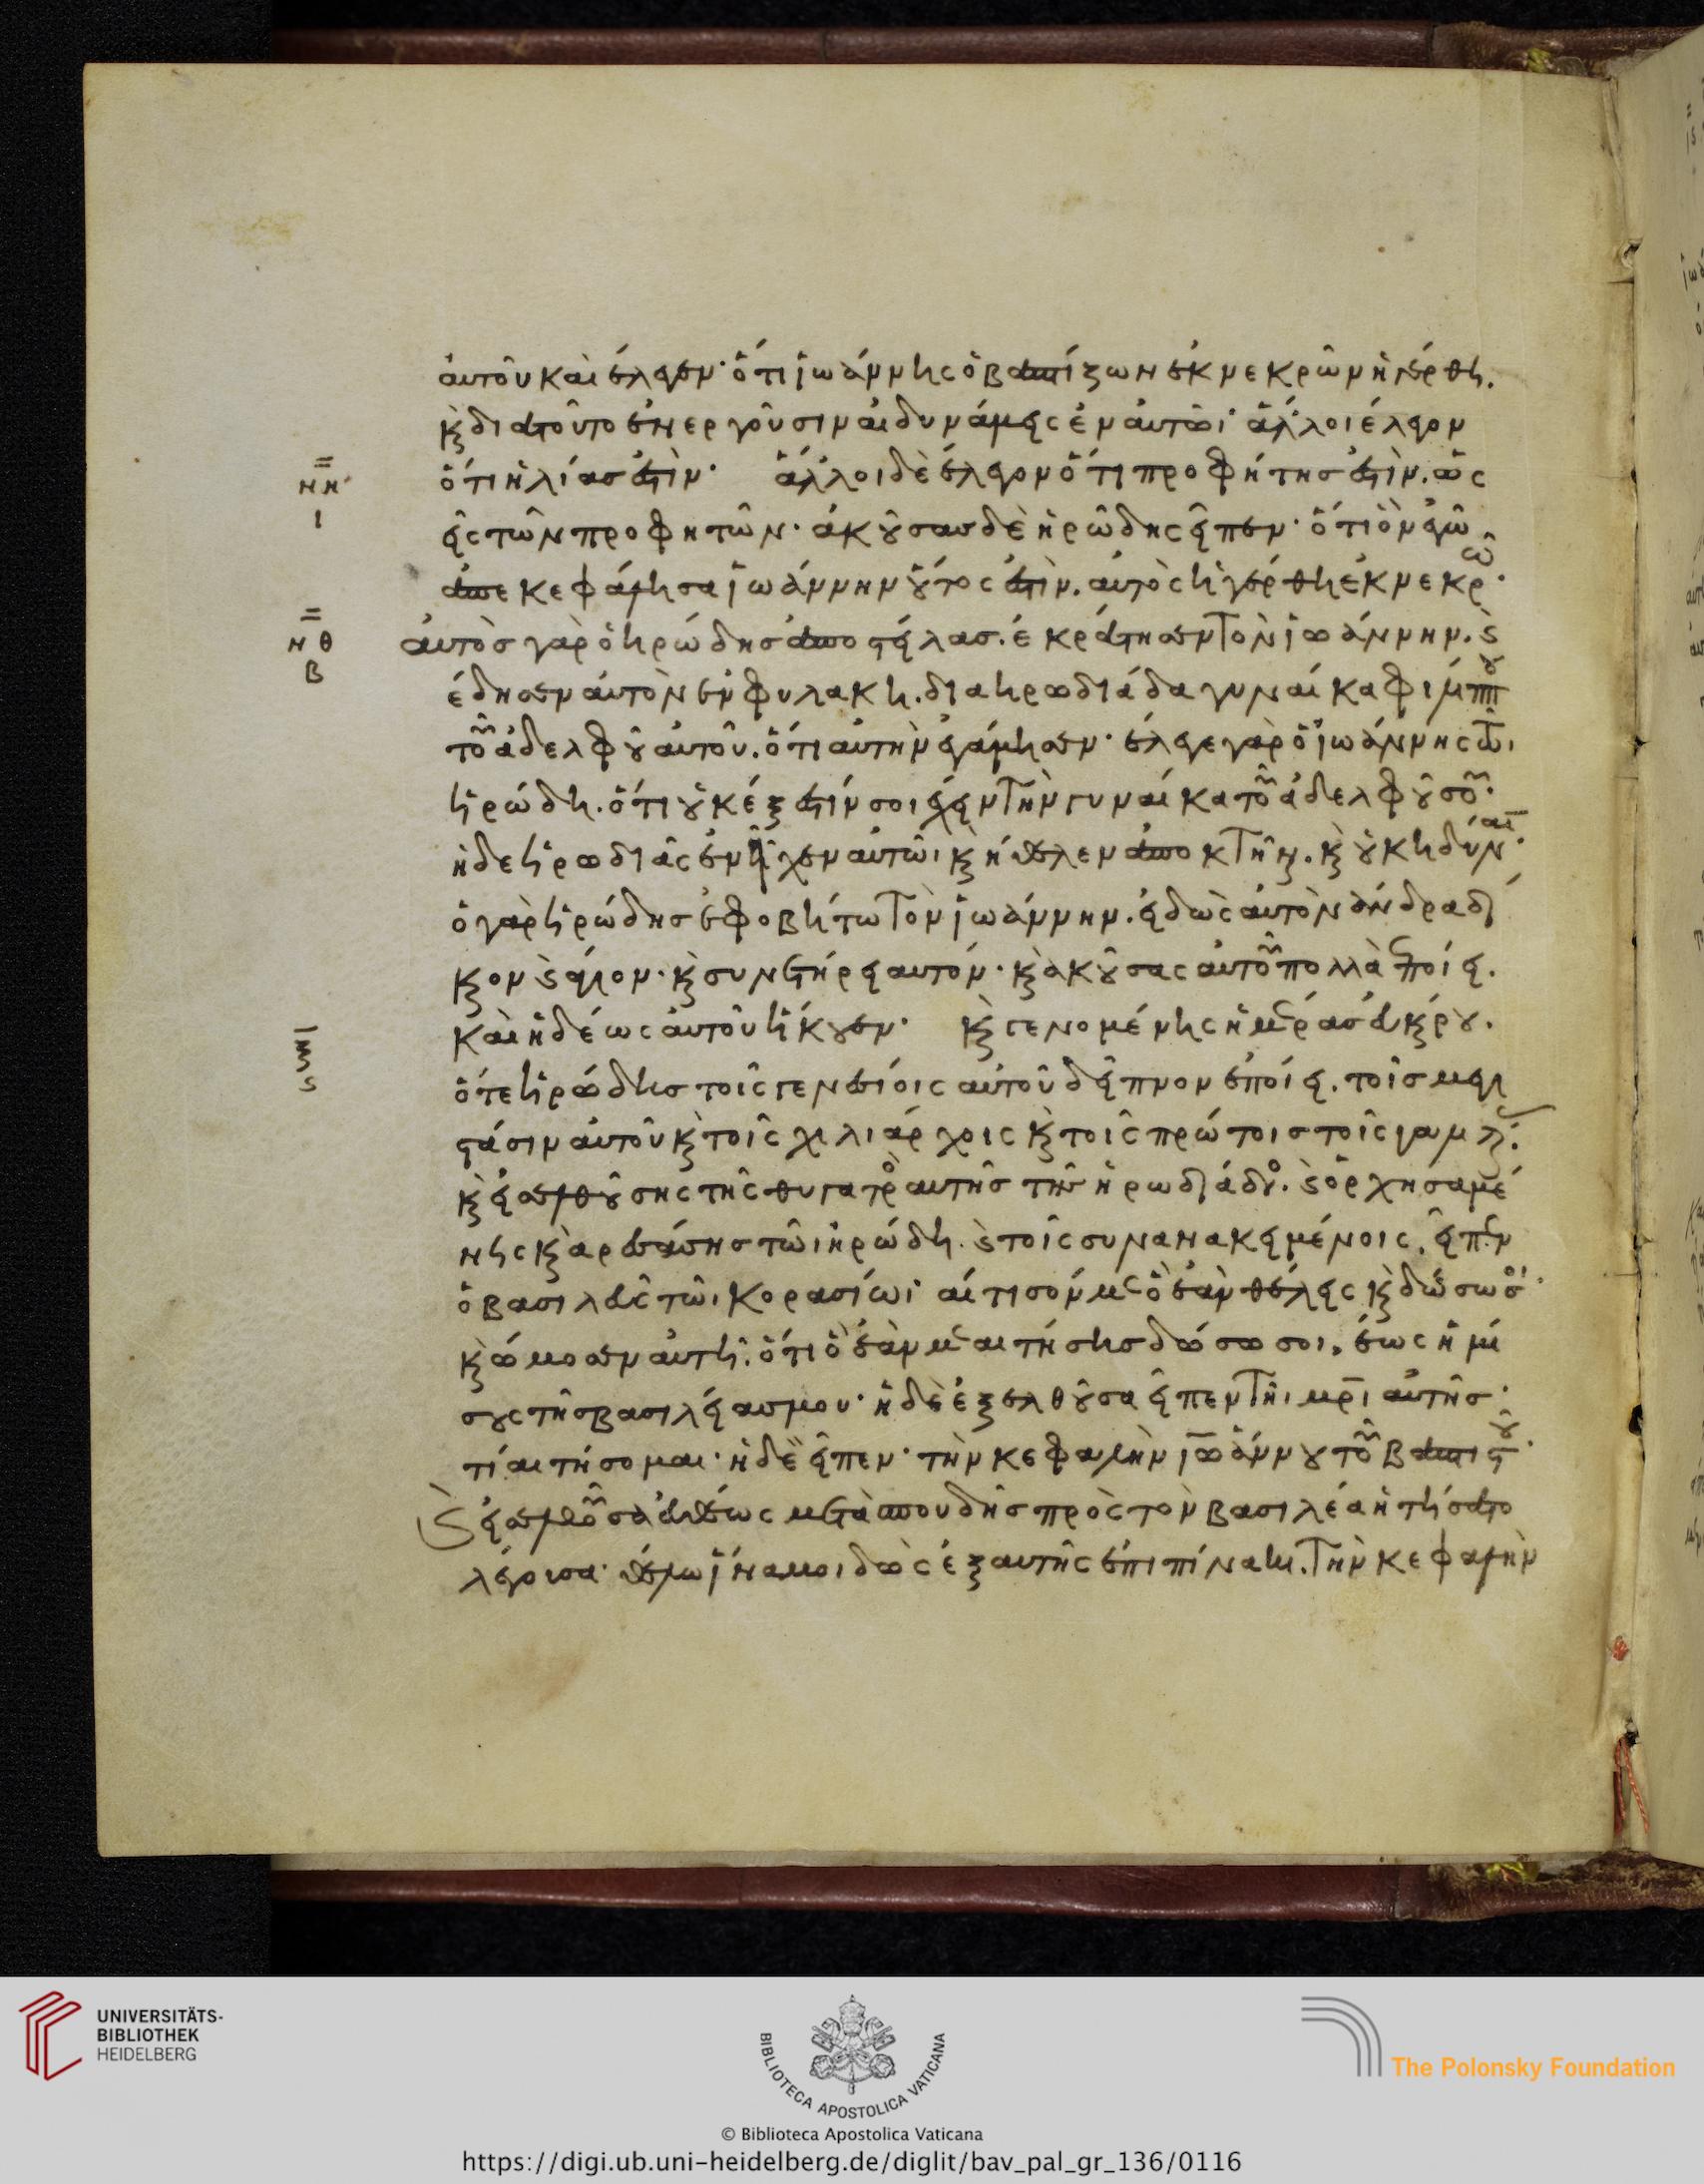 αυτοῦ καὶ ἔλεγεν· ὅτι ἰωάννης ὁ βαπτίζων ἐκ νεκρῶν ἠγέρθη.
κ̀ διατοῦτο ἐνεργοῦσιν αἱ δυνάμεις ἐν αὐτῶι· ἄλλοι ἔλεγον
ὅτι ἠλίας ἐστὶν· ἄλλοι δὲ ἔλεγον ὅτι προφήτης ἐστὶν. ὡς
εἷς τῶν προφητῶν· ἀκούσας δὲ ἡρώδης εἶπεν· ὅτι ὃν ἐγὼ
ἀπεκεφάλησα ἰωάννην οὗτος ἐστὶν. αὐτὸς ἠγέρθη ἐκ νεκρῶ·
αὐτὸς γὰρ ὁ ἡρώδης ἀποστείλας. ἐκράτησεν τὸν ἰωάννην. κ̀
ἔδησεν αὐτὸν ἐν φυλακῆ. δια ἡρωδιάδα γυναίκα φιλίππου
τοῦ ἀδελφοῦ αὐτοῦ. ὅτι αὐτὴν ἐγάμησεν· ἔλεγε γὰρ ὁ ἰωάννης τῶι
ἡρώδη. ὅτι οὐκ έξεστίν σοι ἔχειν τὴν γυναίκα τοῦ ἀδελφοῦ σοῦ·
ἡ δε ἡρωδιὰς ἐνεῖχεν αὐτῶι κ̀ ήθελεν ἀποκτῆναι. κ̀ οὐκ ηδύνατ·
ὁ γὰρ ἡρώδης ἐφοβήτω τὸν ἰωάννην. εἰδὼς αὐτὸν ἄνδρα δί
καιον κ̀ ἅγιον. κ̀ συνετήρει αυτόν· κ̀ ἀκούσας αὐτοῦ πολλὰ ἐποίει.
καὶ ἡδέως αὐτοῦ ήκουεν· κ̀ γενομένης ἡμέρας εὐκαίρου.
ὅτε ἡρώδης τοῖς γενεσίοις αὐτοῦ δεῖπνον ἐποίει. τοῖς μεγι
στάσιν αὐτοῦ κ̀ τοῖς χιλιάρχοις κ̀ τοῖς πρώτοις τοῖς γαλιλ.
κ̀ εἰσελθούσης τῆς θυγατρὸ αυτῆς τῆς ἡρωδιάδος. κ̀ ὀρχησαμέ
νης κ̀ αρεσάσης τῶι ἡρώδη. κ̀ τοῖς συνανακειμένοις. εἶπεν
ὁ βασιλεὺς τῶι κορασίωι· αίτισόν με ὃ ἐὰν θέλεις κ̀ δώσω σοί·
κ̀ ώμοσεν αὐτῆ. ὅτι ὃ ἐὰν με αιτήσης δώσω σοι. έως ἡμί
σους τῆς βασιλείας μου· ἡ δὲ ἐξελθοῦσα εἶπεν τῆι μρ̄ι αὐτῆς·
τί αιτήσομαι· ἡ δὲ εἶπεν· τὴν κεφαλὴν ἰωάννου τοῦ βαπτιστοῦ·
κ̀ εἰσελθοῦσα εὐθέως μετὰ σπουδῆς πρὸς τὸν βασιλέα ητήσατο
λέγουσα· θέλω ἵνα μοι δῶς ἐξαυτῆς ἐπι πίνακι. τὴν κεφαλὴν
ΝΗ
Ι
ΝΘ
Β
Ιῃς
UNIVERSITÄTS-
BIBLIOTHEK
HEIDELBERG
BIBLIOTECA APOSTOLICA VATICANA
The Polonsky Foundation
© Biblioteca Apostolica Vaticana
https://digi.ub.uni-heidelberg.de/diglit/bav_pal_gr_136/0116